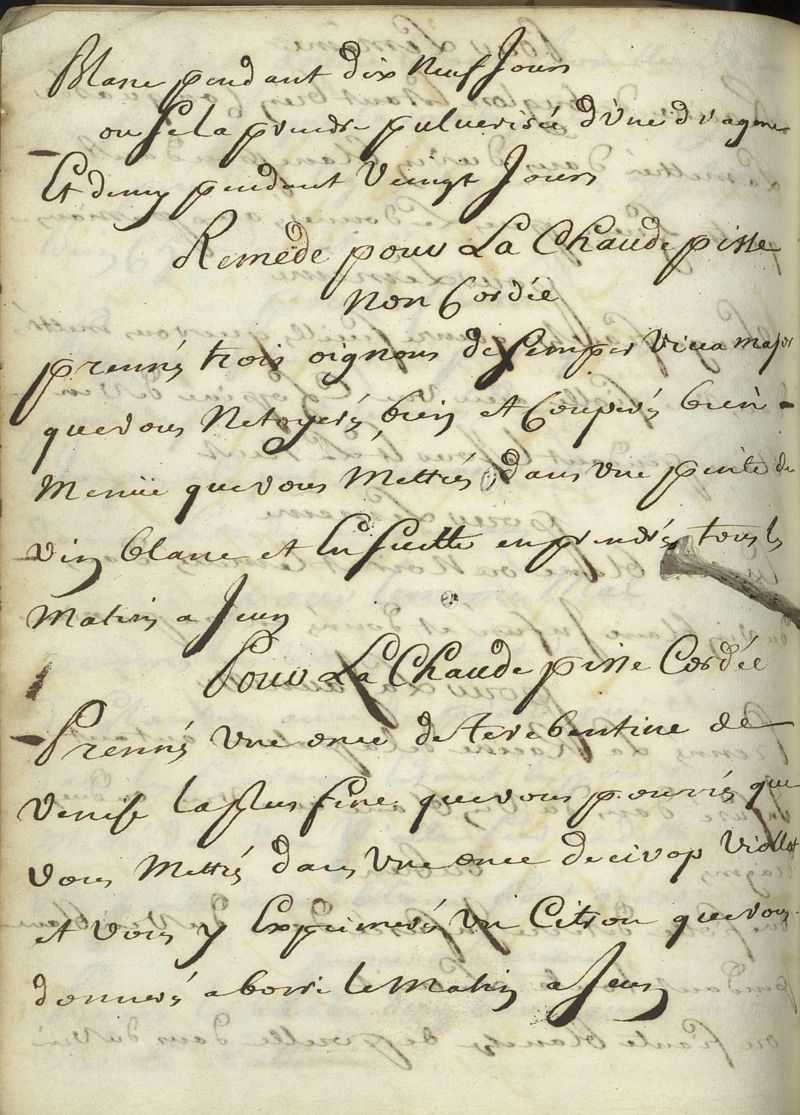 Blanc pendant dix neuf Jours
ou se la prendre pulverisée d'une dragme
Et demy pendant Veingt Jours
Remede pour La Chaude pisse
non Cordée
prennés trois oignons de Semper Viva major
que vous Netoyerés bien et Couperés bien
Menüe que vous Mettrés dans une peinte de
vin blanc et En suitte en prendrés tous les
Matins a Jeun
Pour La Chaude pisse Cordée
Prennés une once de terebentine de
Venise la plus fine que vous pourrés que
vous Mettrés dans une once de cirop Viollat
et vous y Exprimerés un Citron que vous
donnerés a boire le Matin a Jeun